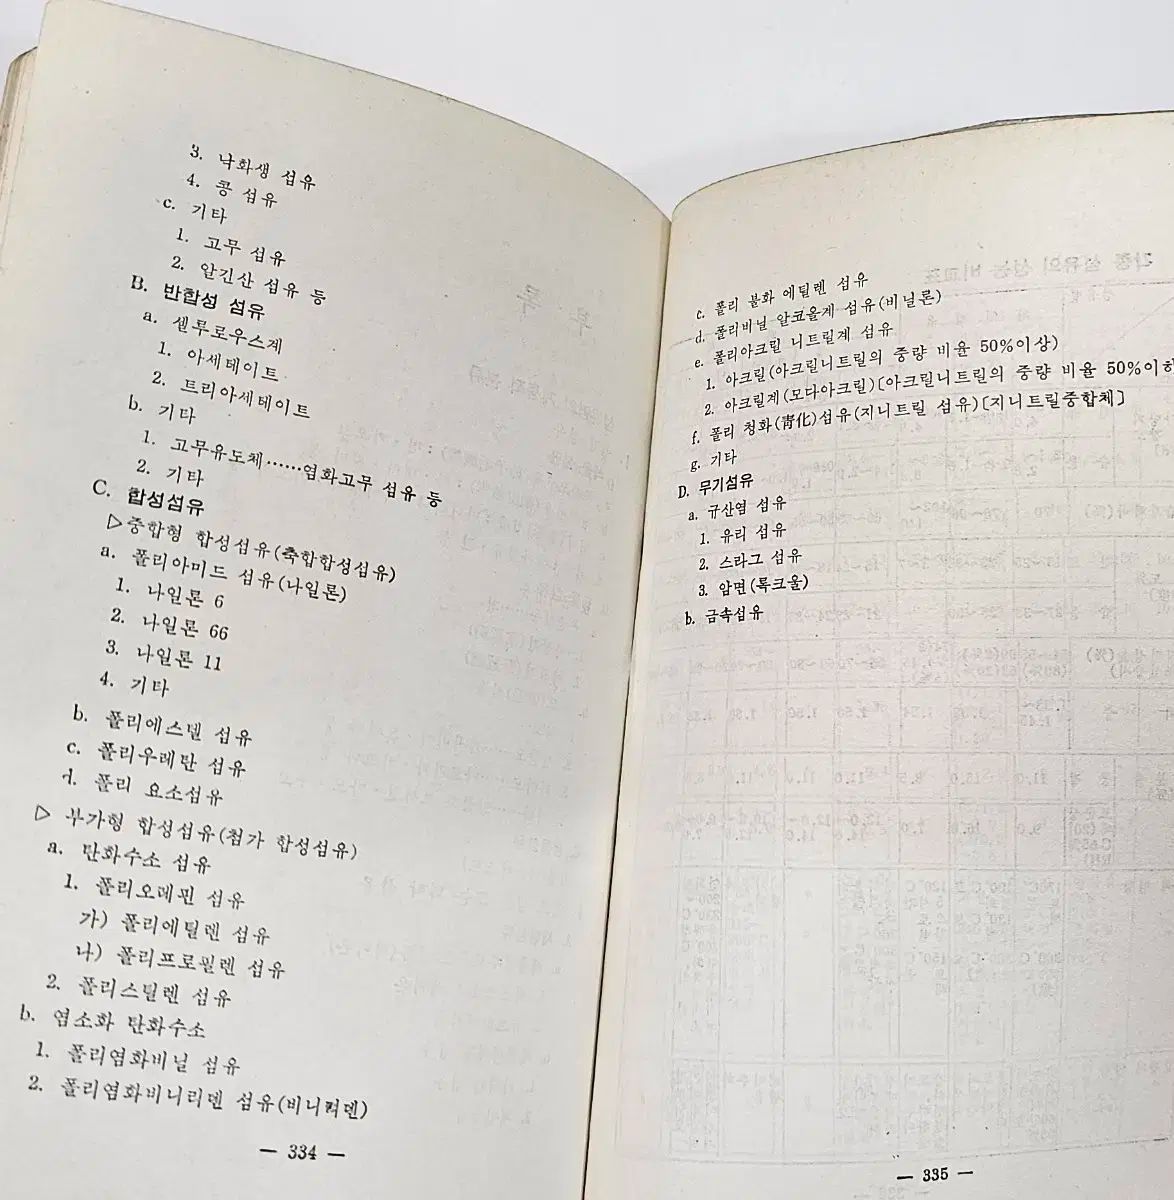 3. 낙화생 섬유
4. 콩 섬유
c. 기타
1. 고무 섬유
2. 알긴산 섬유 등
B. 반합성 섬유
a. 셀투로우스계
1. 아세테이트
2. 트리아세테이트
b. 기타
1. 고무유도체……염화고무 섬유 등
2. 기타
C. 합성섬유
▷중합형 합성섬유(축합합성섬유)
a. 폴리아미드 섬유(나일론)
1. 나일론 6
2. 나일론 66
3. 나일론 11
4. 기타
b. 폴리에스델 섬유
c. 폴리우레탄 섬유
d. 폴리 요소섬유
▷ 부가형 합성섬유(첨가 합성섬유)
a. 탄화수소 섬유
1. 폴리오레핀 섬유
가) 폴리에틸렌 섬유
나) 폴리프로필렌 섬유
2. 폴리스틸렌 섬유
b. 염소화 탄화수소
1. 폴리염화비닐 섬유
2. 폴리염화비니리덴 섬유(비니리덴)
— 334 —
c. 폴리 불화 에틸렌 섬유
d. 폴리비닐 알코올계 섬유(비닐론)
e. 폴리아크릴 니트릴계 섬유
1. 아크릴(아크릴니트릴의 중량 비율 50%이상)
2. 아크릴계(모다아크릴)[아크릴니트릴의 중량 비율 50%이하
f. 폴리 청화(靑化)섬유(지니트릴 섬유)[지니트릴중합체]
g. 기타
D. 무기섬유
a. 규산염 섬유
1. 유리 섬유
2. 스라그 섬유
3. 암면(록크울)
b. 금속섬유
— 335 —